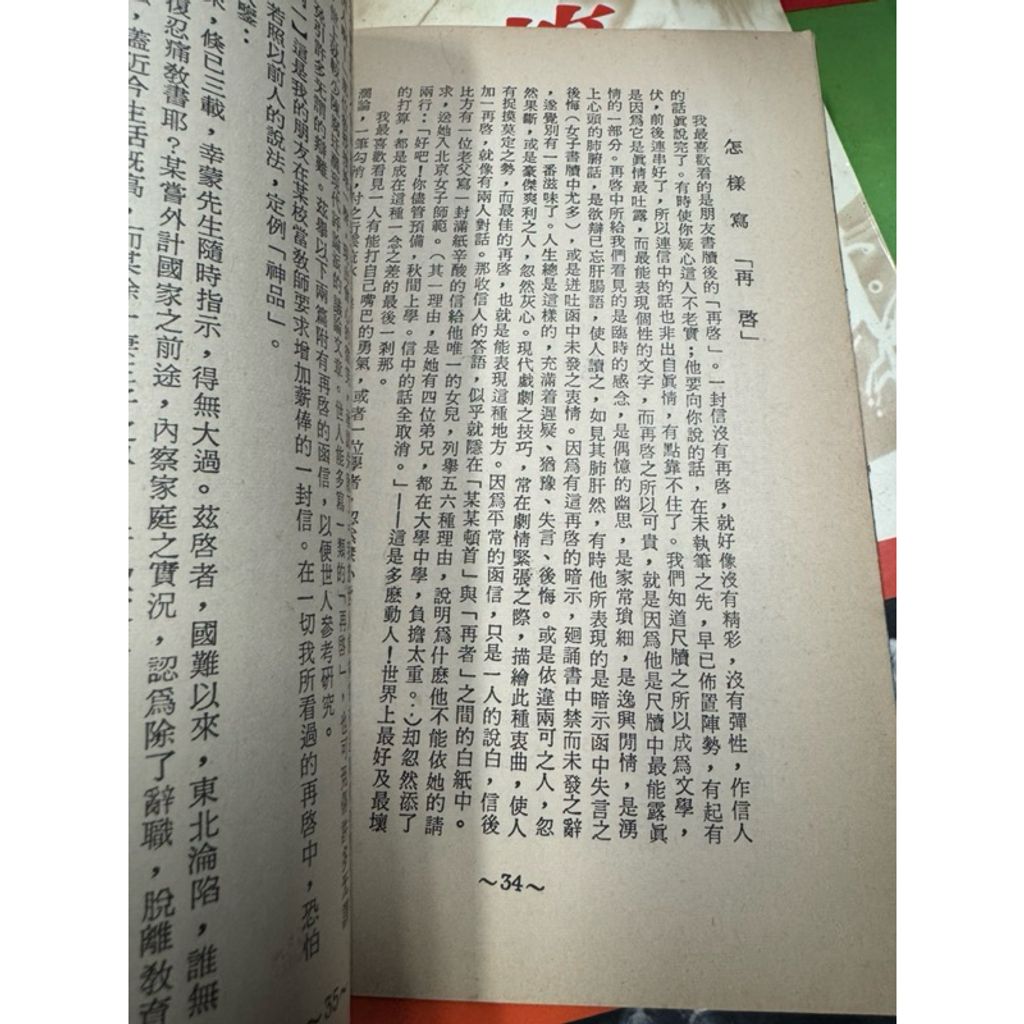 怎樣寫「再啓」
我最喜歡看的是朋友書牘後的「再啓」。一封信沒有再啓，就好像沒有精彩，沒有彈性，作信人
的話眞說完了。有時使你疑心這人不老實；他要向你說的話，在未執筆之先，早已佈置陣勢，有起有
伏，前後連串好了，所以連信中的話也非出自眞情，有點靠不住了。我們知道尺牘之所以成爲文學，
是因爲它是眞情最吐露，而最能表現個性的文字，而再啓之所以可貴，就是因爲他是尺牘中最能露眞
情的一部分。再啓中所給我們看見的是臨時的感念，是偶憶的幽思，是家常瑣細，是逸興閒情，是湧
上心頭的肺腑話，是欲辯已忘肝腸語，使人讀之，如見其肺肝然，有時他所表現的是暗示函中失言之
後悔（女子書牘中尤多），或是迸吐函中未發之衷情。因爲有這再啓的暗示，廻誦書中禁而未發之辭
，遂覺別有一番滋味了。人生總是這樣的，充滿着遲疑、猶豫、失言、後悔。或是依違兩可之人，忽
然果斷，或是豪傑爽利之人，忽然灰心。現代戲劇之技巧，常在劇情緊張之際，描繪此種衷曲，使人
有捉摸莫定之勢，而最佳的再啓，也就是能表現這種地方。因爲平常的函信，只是一人的說白，信後
加一再啓，就像有兩人對話。那收信人的答語，似乎就隱在「某某頓首」與「再者」之間的白紙中。
比方有一位老父寫一封滿紙辛酸的信給他唯一的女兒，列舉五六種理由，說明爲什麽他不能依她的請
求，送她入北京女子師範。（其一理由，是她有四位弟兄，都在大學中學，負擔太重。‥）却忽然添了
兩行：「好吧！你儘管預備，秋間上學。信中的話全取消。」——這是多麽動人！世界上最好及最壞
的打算，都是成在這種一念之差的最後一刹那。
我最喜歡看見一人有能打自己嘴巴的勇氣，或者一位學者
～34～
兹舉以下兩篇附有再啓的函信，以便世人參考硏究。
這是我的朋友在某校當敎師要求增加薪俸的一封信。在一切我所看過的再啓中，恐怕
若照以前人的說法，定例「神品」。
，倐已三載，幸蒙先生隨時指示，得無大過。茲啓者，國難以來，東北淪陷，誰無
復忍痛敎書耶？某嘗外計國家之前途，內察家庭之實況，認爲除了辭職，脫離敎育
，蓋近今生活旣高，
35～